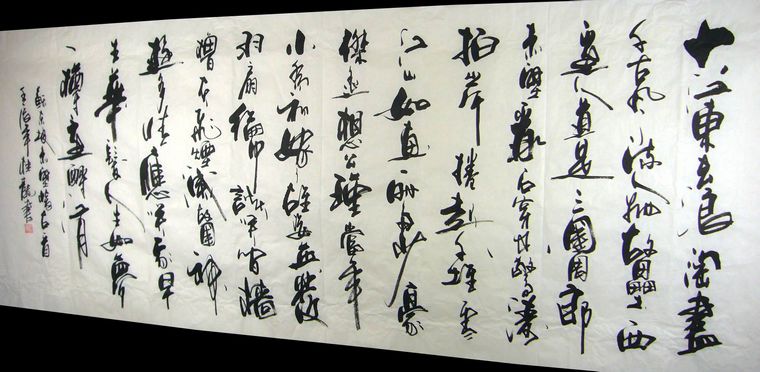 大江東去浪淘盡
千古風流人物故壘西
邊人道是三國周郎
赤壁亂石穿空驚濤
拍岸捲起千堆雪
江山如畫一時多少豪
傑遙想公瑾當年
小喬初嫁了雄姿英發
羽扇綸巾談笑間檣
櫓灰飛煙滅故國神
遊多情應笑我早
生華髮人生如夢
一樽還酹江月
蘇東坡赤壁懷古一首
年 書